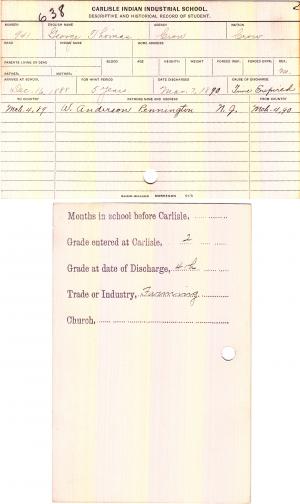 638
CARLISLE INDIAN INDUSTRIAL SCHOOL.
2
DESCRIPTIVE AND HISTORICAL RECORD OF STUDENT.
NUMBER ENGLISH NAME AGENCY NATION
941 George Thomas Crow Crow
BAND INDIAN NAME HOME ADDRESS
PARENTS LIVING OR DEAD BLOOD AGE HEIGHT WEIGHT FORCED INSP. FORCED EXPR. SEX
FATHER, MOTHER, M.
ARRIVED AT SCHOOL FOR WHAT PERIOD DATE DISCHARGED CAUSE OF DISCHARGE
Dec. 16, 1888 5 Years Mar. 7, 1890 Time Expired
TO COUNTRY PATRONS NAME AND ADDRESS FROM COUNTRY
Mch. 4, 89 W. Anderson Pennington N. J. Mch. 4, 90
Months in school before Carlisle,
Grade entered at Carlisle, 2
Grade at date of Discharge, 4th
Trade or Industry, Farming
Church,